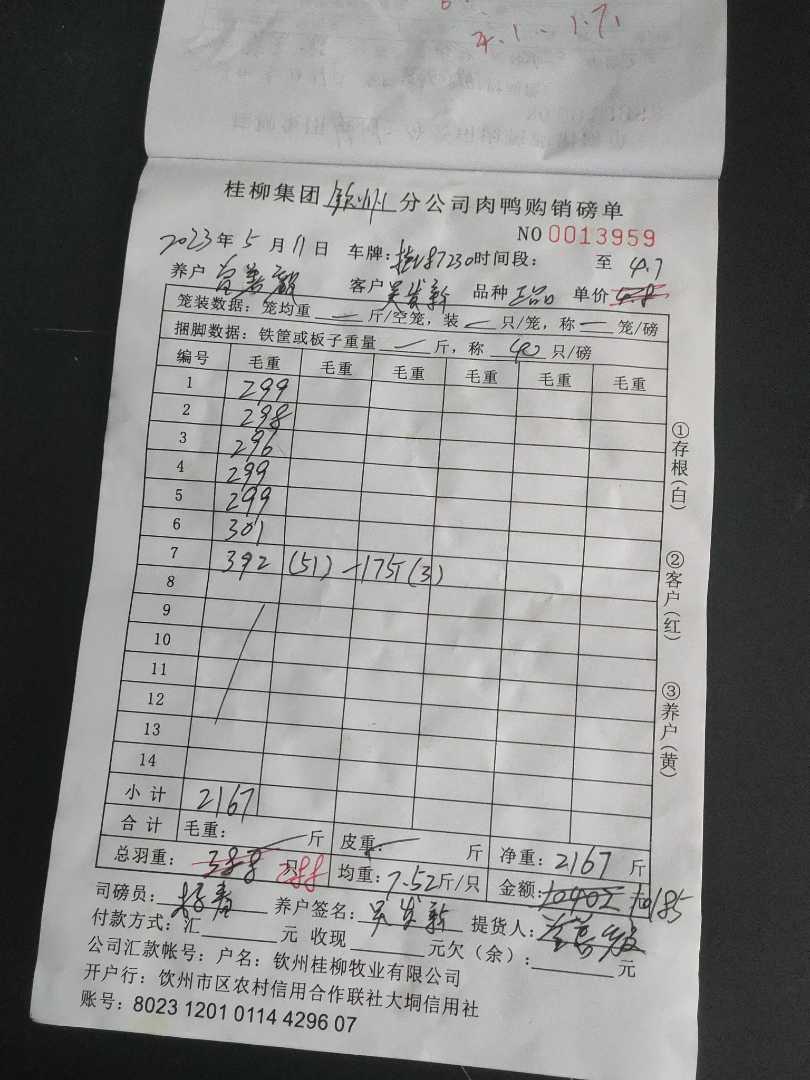 4.1 .. 1.7.
桂柳集团 钦州 分公司肉鸭购销磅单
NO 0013959
2023年 5 月 11 日 车牌: 87230 时间段: 至 4.7
养户 客户 吴发新 品种 正品 单价 4.8
笼装数据: 笼均重 — 斤/空笼, 装 只/笼, 称 — 笼/磅
捆脚数据: 铁筐或板子重量 — 斤, 称 40 只/磅
编号 毛重 毛重 毛重 毛重 毛重 毛重
1 299
2 298
3 296
4 299
5 299
6 301
7 392 (51) -175T (3)
8
9
10
11
12
13
14
小计 2167
合计 毛重: 斤 皮重: 斤 净重: 2167 斤
总羽重: 388 只 288 均重: 7.52 斤/只 金额: 10402 10185
司磅员: 养户签名: 吴发新 提货人:
付款方式: 汇 元 收现 元欠（余）: 元
公司汇款帐号: 户名: 钦州桂柳牧业有限公司
开户行: 钦州市区农村信用合作联社大垌信用社
账号: 8023 1201 0114 4296 07
①存根(白)
②客户(红)
③养户(黄)